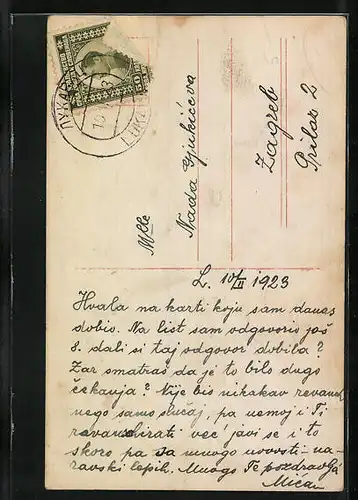 ЛУКА
LUKA
10
50
Mlle
Nada Gjukićeva
Zagreb
Prilaz 2
L. 10/II 1923
Hvala na karti koju sam danas
dobio. Na list sam odgovorio još
8. dali si taj odgovor dobila?
Zar smatraš da je to bilo dugo
čekanja? Nije bio nikakav revanš,
nego samo slučaj, pa nemoj i Ti
revanširati već javi se i to
skoro pa sa mnogo novosti - na-
ravski lepih. Mnogo Te pozdravlja
Mićan